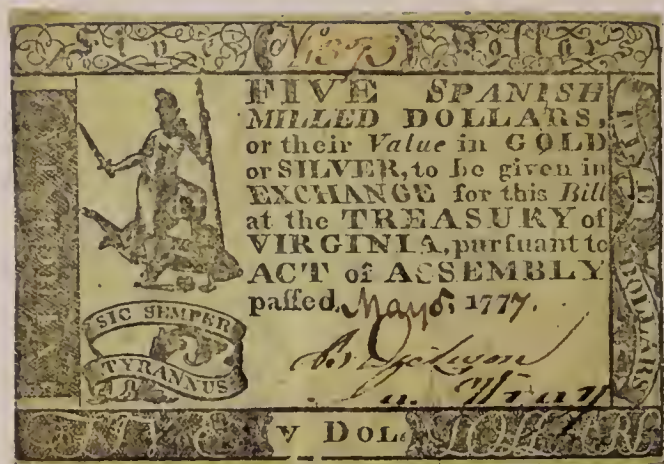 Five Dollars
VIRGINIA
FIVE SPANISH
MILLED DOLLARS,
or their Value in GOLD
or SILVER, to be given in
EXCHANGE for this Bill
at the TREASURY of
VIRGINIA, pursuant to
ACT of ASSEMBLY
passed, May 5, 1777.
SIC SEMPER
TYRANNUS
FIVE DOLLARS
Wray
V DOL.
DOLLARS